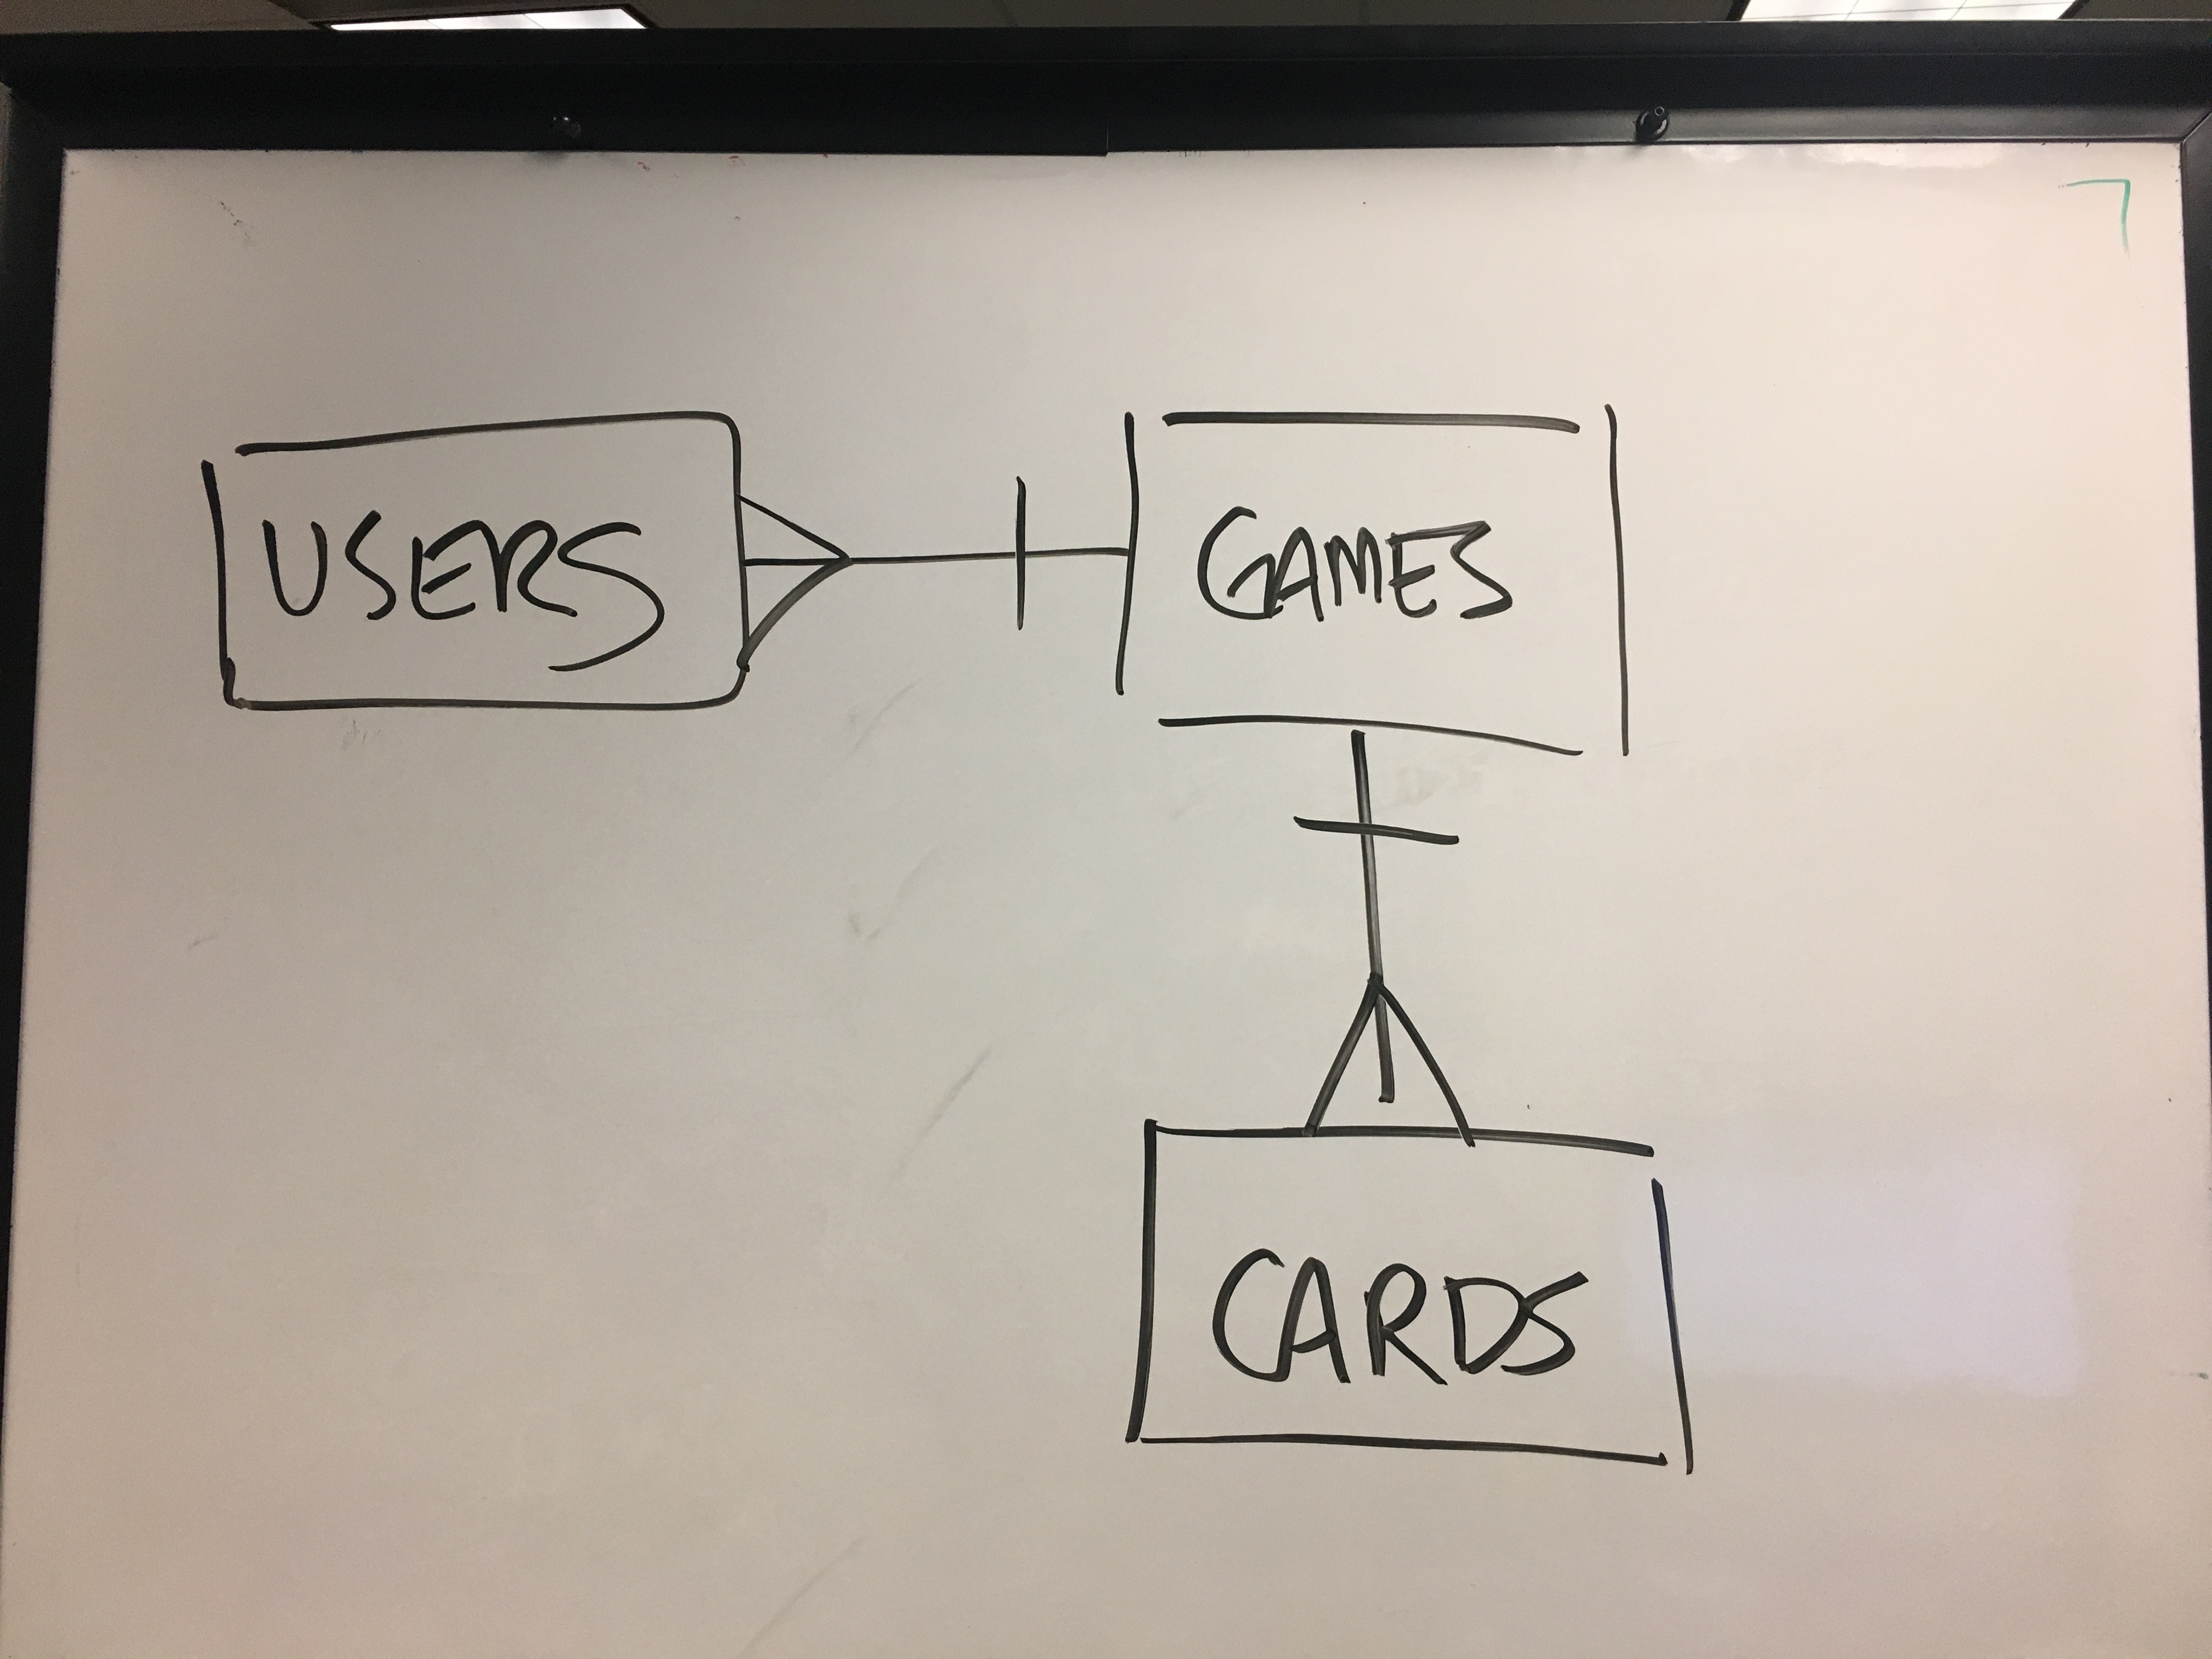 USERS
GAMES
CARDS